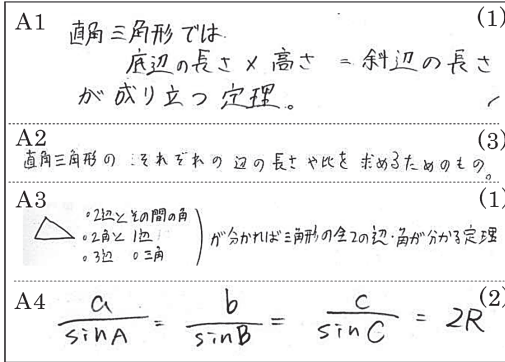 A1 (1)
直角三角形では
底辺の長さ × 高さ = 斜辺の長さ
が成り立つ定理。
A2 (3)
直角三角形の それぞれの辺の長さや比を求めるためのもの。
A3 (1)
○2辺とその間の角
○2角と1辺
○3辺 ○三角
が分かれば三角形の全ての辺・角が分かる定理
A4 (2)
a/sinA = b/sinB = c/sinC = 2R